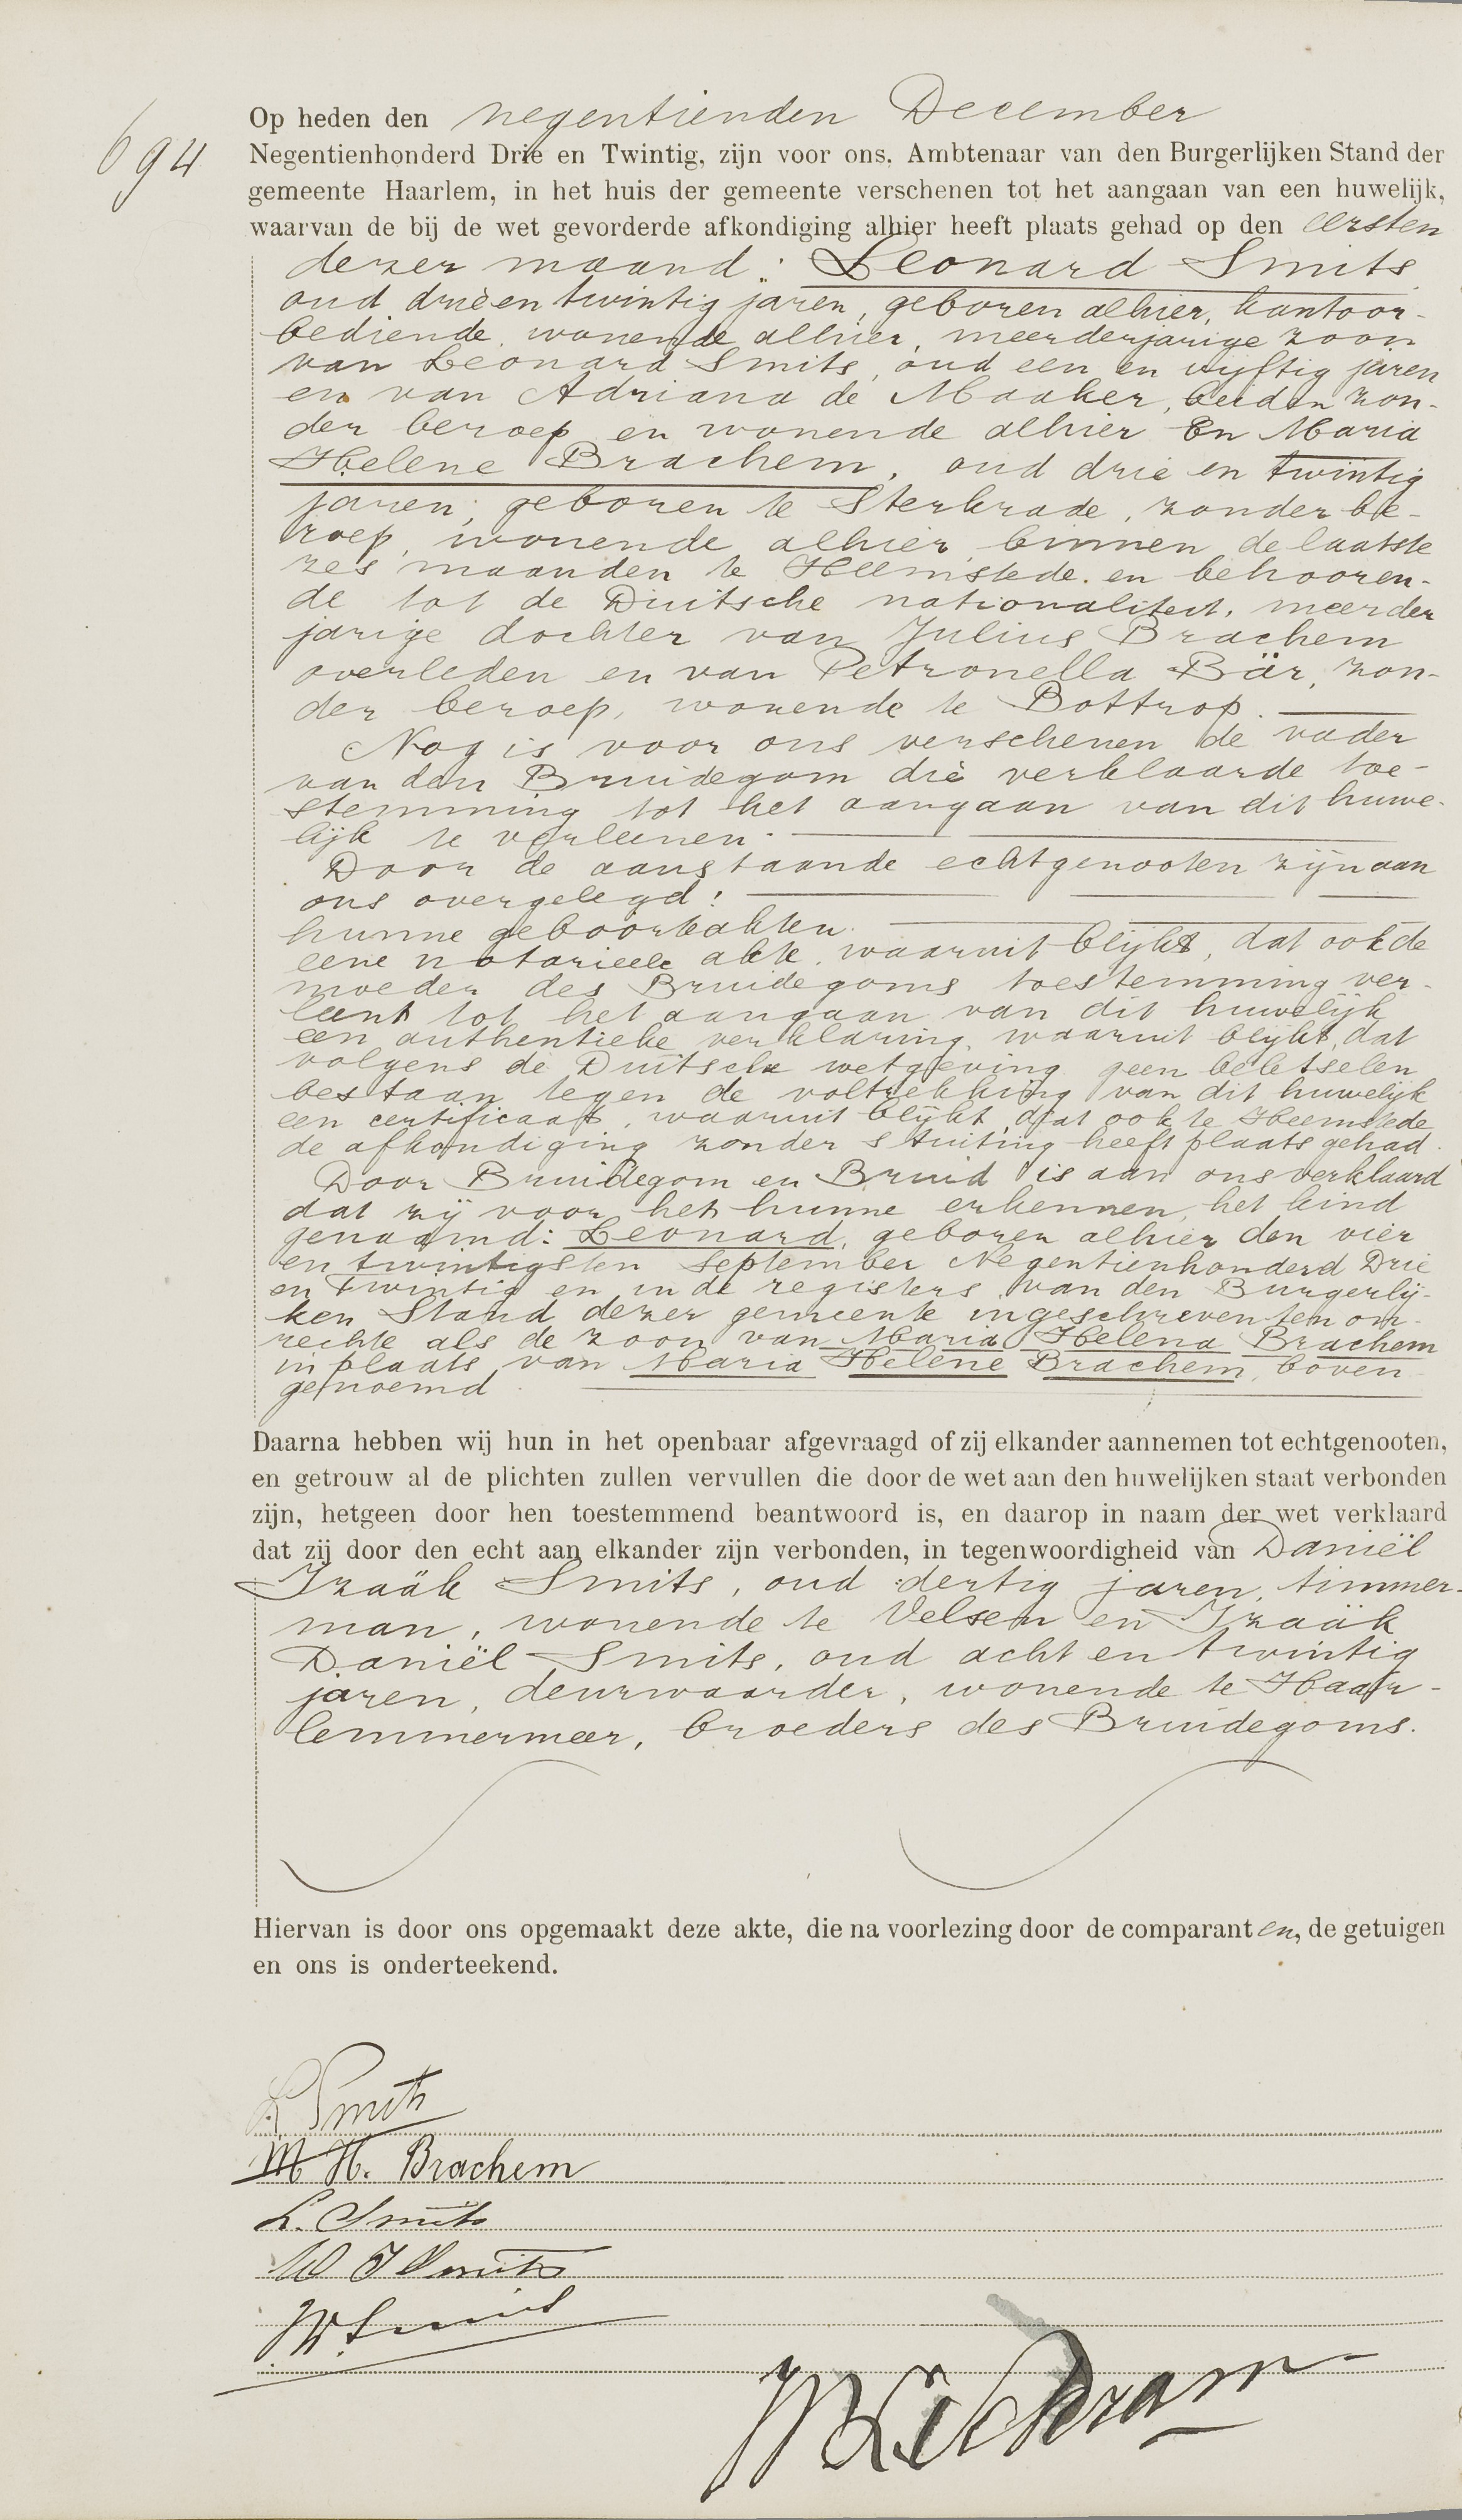 694
Op heden den negentienden December
Negentienhonderd Drie en Twintig, zijn voor ons, Ambtenaar van den Burgerlijken Stand der
gemeente Haarlem, in het huis der gemeente verschenen tot het aangaan van een huwelijk,
waarvan de bij de wet gevorderde afkondiging alhier heeft plaats gehad op den eersten
dezer maand: Leonard Smits
oud drieentwintig jaren, geboren alhier, kantoor-
bediende, wonende alhier, meerderjarige zoon
van Leonard Smits, oud een en vijftig jaren
en van Adriana de Maaker, beiden zon-
der beroep en wonende alhier En Maria
Helene Brachem, oud drie en twintig
jaren, geboren te Sterkrade, zonder be-
roep, wonende alhier binnen de laatste
zes maanden te Heemstede. en behooren-
de tot de Duitsche nationaliteit, meerder
jarige dochter van Julius Brachem
overleden en van Petronella Bär, zon-
der beroep, wonende te Bottrop.
Nog is voor ons verschenen de vader
van den Bruidegom die verklaarde toe-
stemming tot het aangaan van dit huwe-
lijk te verleenen.
Door de aanstaande echtgenooten zijn aan
ons overgelegd:
hunne geboorteakten.
eene notarieele akte, waaruit blijkt, dat ook de
moeder des Bruidegoms toestemming ver-
leent tot het aangaan van dit huwelijk
een authentieke verklaring, waaruit blijkt, dat
volgens de Duitsche wetgeving geen beletselen
bestaan tegen de voltrekking van dit huwelijk
een certificaat, waaruit blijkt, dat ook te Heemstede
de afkondiging zonder stuiting heeft plaats gehad.
Door Bruidegom en Bruid is aan ons verklaard
dat zij voor het hunne erkennen, het kind
genaamd: Leonard, geboren alhier den vier
en twintigsten September Negentienhonderd Drie
en Twintig en in de registers van den Burgerlij-
ken Stand dezer gemeente ingeschreven ten on-
rechte als de zoon van Maria Helena Brachem
in plaats van Maria Helene Brachem, boven
genoemd.
Daarna hebben wij hun in het openbaar afgevraagd of zij elkander aannemen tot echtgenooten,
en getrouw al de plichten zullen vervullen die door de wet aan den huwelijken staat verbonden
zijn, hetgeen door hen toestemmend beantwoord is, en daarop in naam der wet verklaard
dat zij door den echt aan elkander zijn verbonden, in tegenwoordigheid van Daniël
Izaäk Smits, oud dertig jaren, timmer-
man, wonende te Velsen en Izaäk
Daniël Smits, oud acht en twintig
jaren, deurwaarder, wonende te Haar-
lemmermeer, broeders des Bruidegoms.
Hiervan is door ons opgemaakt deze akte, die na voorlezing door de comparanten, de getuigen
en ons is onderteekend.
L Smits
M H. Brachem
L. Smits
Smits
Smits